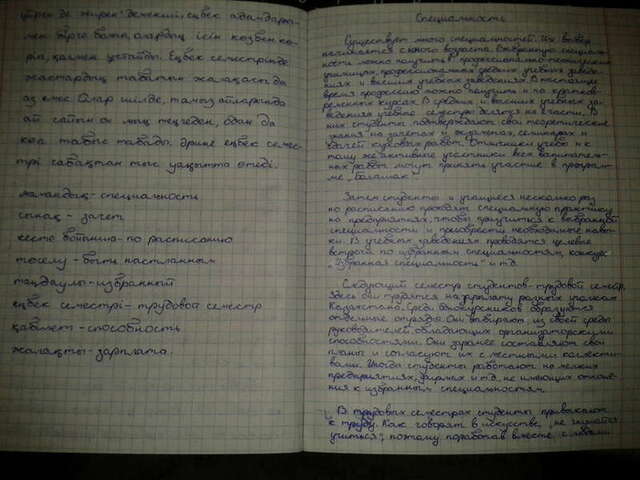 үйрек де жирек демекші, еңбек адамдары-
мен бірге бола, олардың ісін көзбен кө-
ріп, қолмен ұстайды. Еңбек семестрінде
жастардың табатын жалақысы да
аз емес. Олар шілде, тамыз айларында
ай сайын он мың теңгеден, одан да
көп табыс табады. Әрине еңбек семес-
трі сабақтан тыс уақытта өтеді.
мамандық - специальность
сынақ - зачет
кесте бойынша - по расписанию
таңдаулы - избранный
еңбек семестрі - трудовой семестр
қабілет - способность
жалақы - зарплата.
Специальность
Существует много специальностей. Их выбор
начинается с юного возраста. Выбранную специаль-
ность можно получить в профессионально-технических
училищах, профессиональных средних учебных заведе-
ниях и высших учебных заведениях. В настоящее
время профессию можно получить и на кратков-
ременных курсах. В средних и высших учебных за-
ведениях учебные семестры делятся на 2 части. В
них студенты подтверждают свои теоретические
знания на зачетах и экзаменах, семинарах и
сдачей курсовых работ. Отличники учебы и к
тому же активные участники всех воспитатель-
ных работ могут принять участие в програм-
ме „Болашак"
Затем студенты и учащиеся несколько раз
по расписанию проходят специальную практику
на предприятиях, чтобы приучиться к выбранной
специальности и приобрести необходимые навы-
ки. В учебных заведениях проводятся целевые
встречи по избранным специальностям, конкурс
„Избранная специальность" и т.д.
Следующий семестр студентов - трудовой семестр.
Здесь они трудятся на зарплату разных уголках
Казахстана. Среди однокурсников образуются
отдельные отряды. Они выбирают из своей среды
руководителей, обладающих организаторскими
способностями. Они заранее составляют свои
планы и согласуют их с местными коллекти-
вами. Иногда студенты работают на мелких
предприятиях, фирмах и т.д. не имеющих отноше-
ния к избранным специальностям.
В трудовых семестрах студенты привыкают
к труду. Как говорят в искусстве, не
учиться", поэтому поработав вместе с людьми